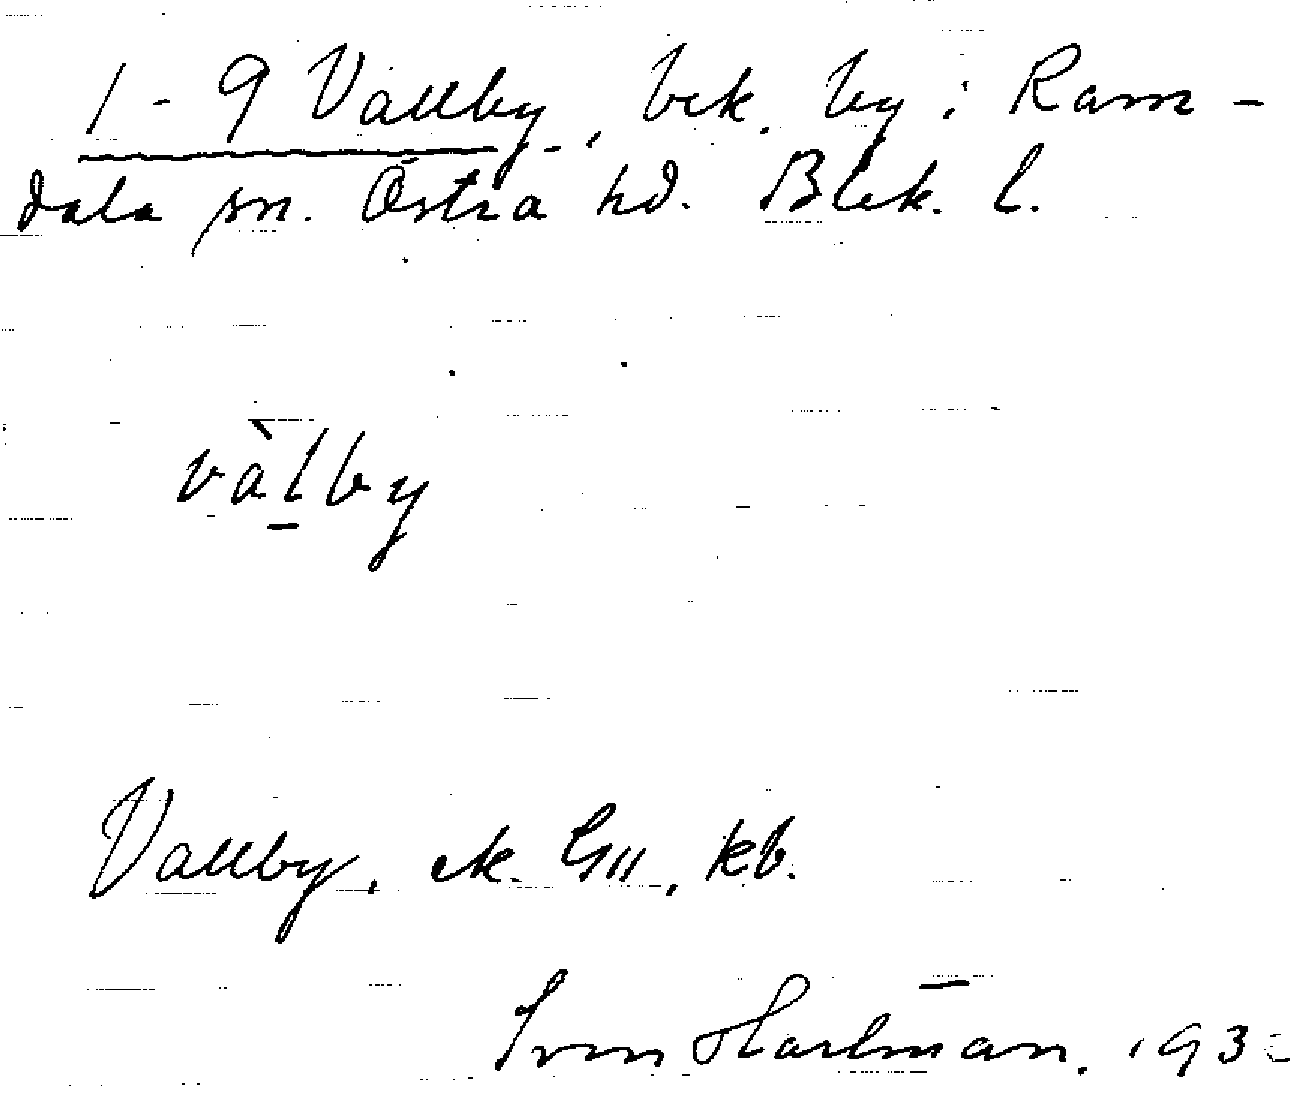 1-9 Vallby, bek. by i Ram-
dala sn. Östra hd. Blek. l.
vàlby
Vallby, ek. GII, kb.
Sven Hartman. 193